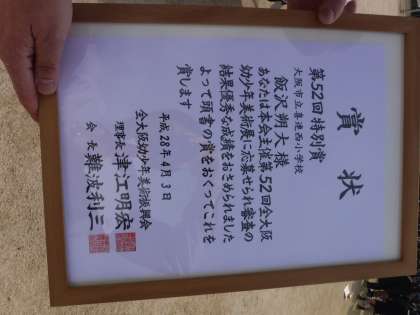 賞状
第52回特別賞
大阪市立喜連西小学校
飯沢朔大様
あなたは本会主催第52回全大阪
幼少年美術展に応募せられ審査の
結果優秀な成績をおさめられました
よって頭書の賞をおくってこれを
賞します
平成28年4月3日
全大阪幼少年美術振興会
理事長 津江明宏
会長 難波利三